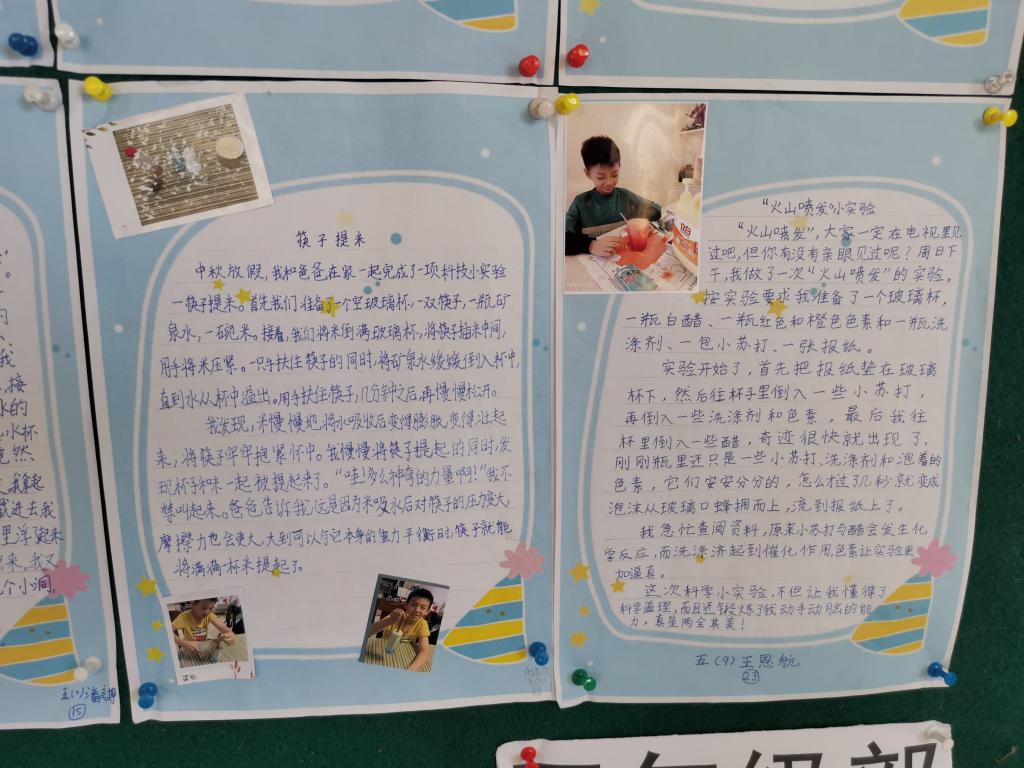 筷子提米
中秋放假，我和爸爸在家一起完成了一项科技小实验
一筷子提米。首先我们准备了一个空玻璃杯，一双筷子，一瓶矿
泉水，一碗米。接着，我们将米倒满玻璃杯，将筷子插米中间，
用手将米压紧。一只手扶住筷子的同时，将矿泉水缓缓倒入杯中，
直到水从杯中溢出。用手扶住筷子，几分钟之后，再慢慢松开。
我发现，米慢慢地，将水吸收后变得膨胀，变得壮起
来，将筷子牢牢抱紧怀中。我慢慢将筷子提起的同时，发
现杯子和米一起被提起来了。“哇！多么神奇的力量啊！”我不
禁叫起来。爸爸告诉我，这是因为米吸水后对筷子的压力变大，
摩擦力也会更大，大到可以与它本身的重力平衡时，筷子就能
将满满一杯米提起了。
“火山喷发”小实验
“火山喷发”，大家一定在电视里见
过吧，但你有没有亲眼见过呢？周日下
午，我做了一次“火山喷发”的实验。
按实验要求我准备了一个玻璃杯，
一瓶白醋、一瓶红色和橙色色素和一瓶洗
涤剂、一包小苏打、一张报纸。
实验开始了，首先把报纸垫在玻璃
杯下，然后往杯子里倒入一些小苏打，
再倒入一些洗涤剂和色素，最后我往
杯里倒入一些醋，奇迹很快就出现了，
刚刚瓶里还只是一些小苏打、洗涤剂和泡着的
色素，它们安安分分的，怎么才过了几秒就变成
泡沫从玻璃口蜂拥而上，流到报纸上了。
我急忙查阅资料，原来小苏打与醋会发生化
学反应，而洗涤济起到催化作用，色素让实验更
加逼真。
这次科学小实验，不但让我懂得了
科学道理，而且还锻炼了我动手动脑的能
力，真是两全其美！
五(9)王恩航
23
15